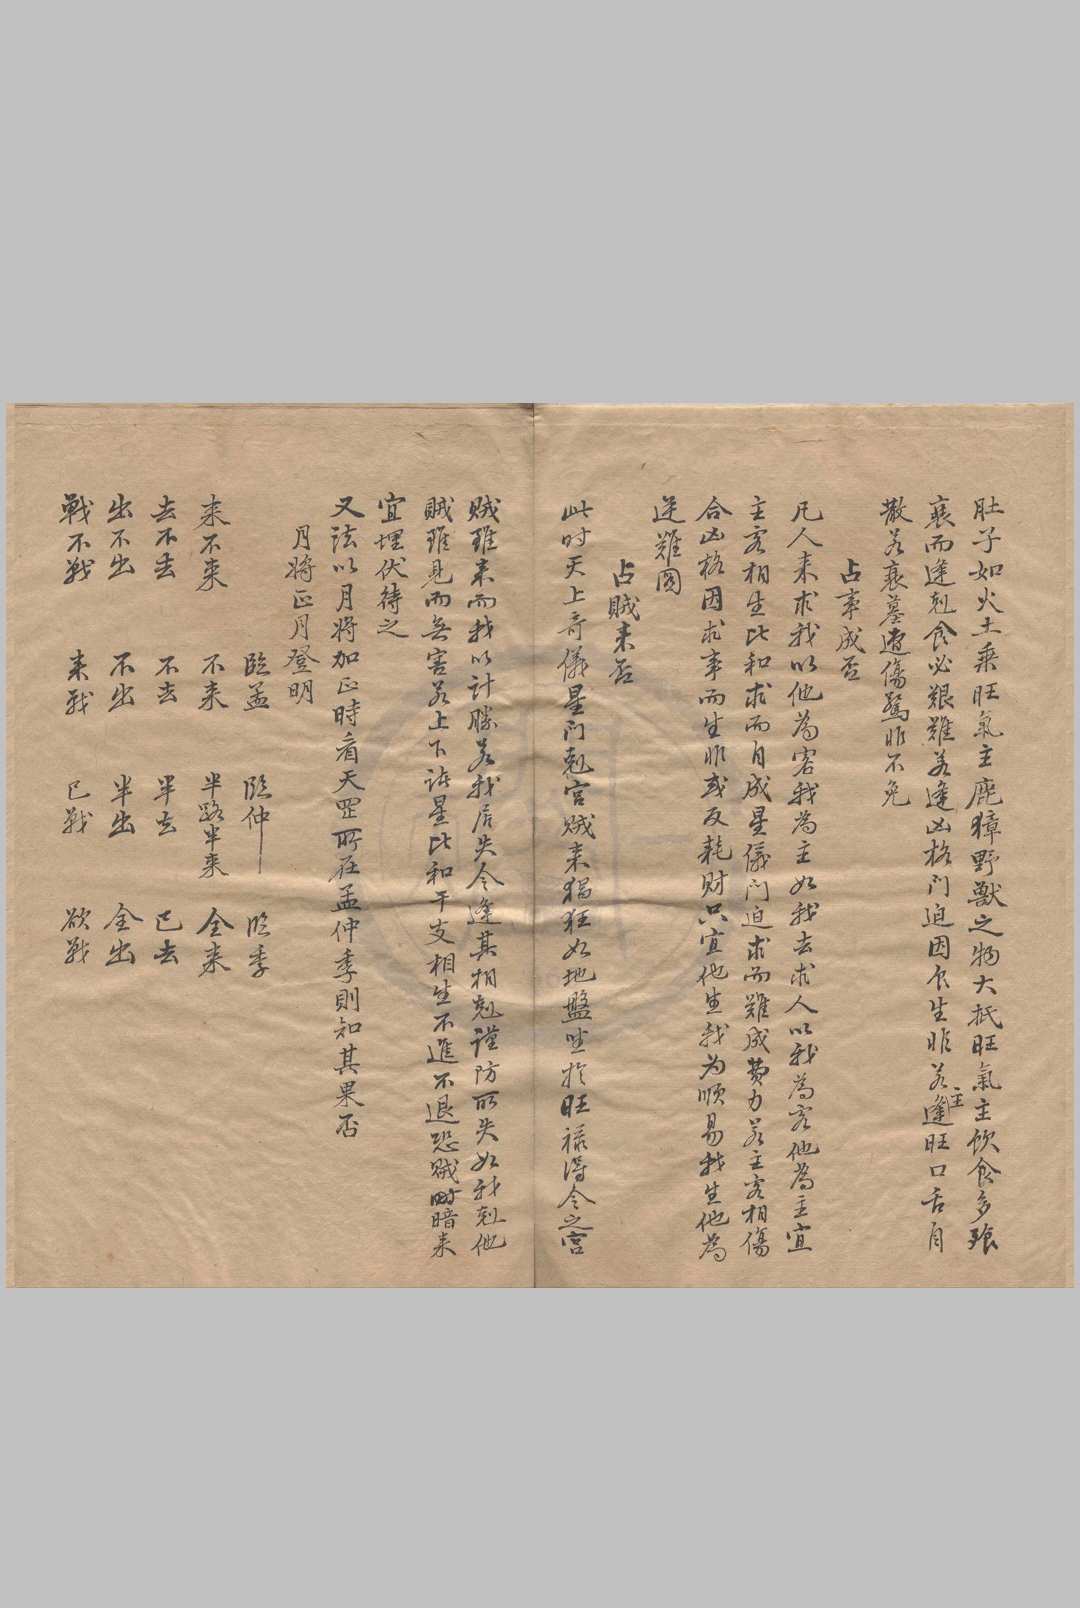 肚子如火土乘旺氣主鹿獐野獸之物大抵旺氣主飲食多殽
衰而逢剋食必艱難若逢凶格門迫因食生非若逢旺主口舌自
散若衰墓遭傷驚非不免
占事成否
凡人来求我以他為客我為主如我去求人以我為客他為主宜
主客相生比和求而自成星儀門迫求而難成費力若主客相傷
合凶格因求事而生非或反耗財只宜他生我为順易我生他為
逆難圖
占賊来否
此时天上奇儀星门剋宫賊来猖狂如地盤坐於旺禄得令之宫
賊雖来而我以計勝若我居失令逢其相剋謹防所失如我剋他
賊雖見而無害若上下諸星比和干支相生不進不退恐賊時暗来
宜埋伏待之
又法以月將加正時看天罡所在孟仲季則知其果否
月將正月登明
臨孟 臨仲 临季
来不来 不来 半路半来 全来
去不去 不去 半去 已去
出不出 不出 半出 全出
戰不戰 来戰 已戰 欲戰